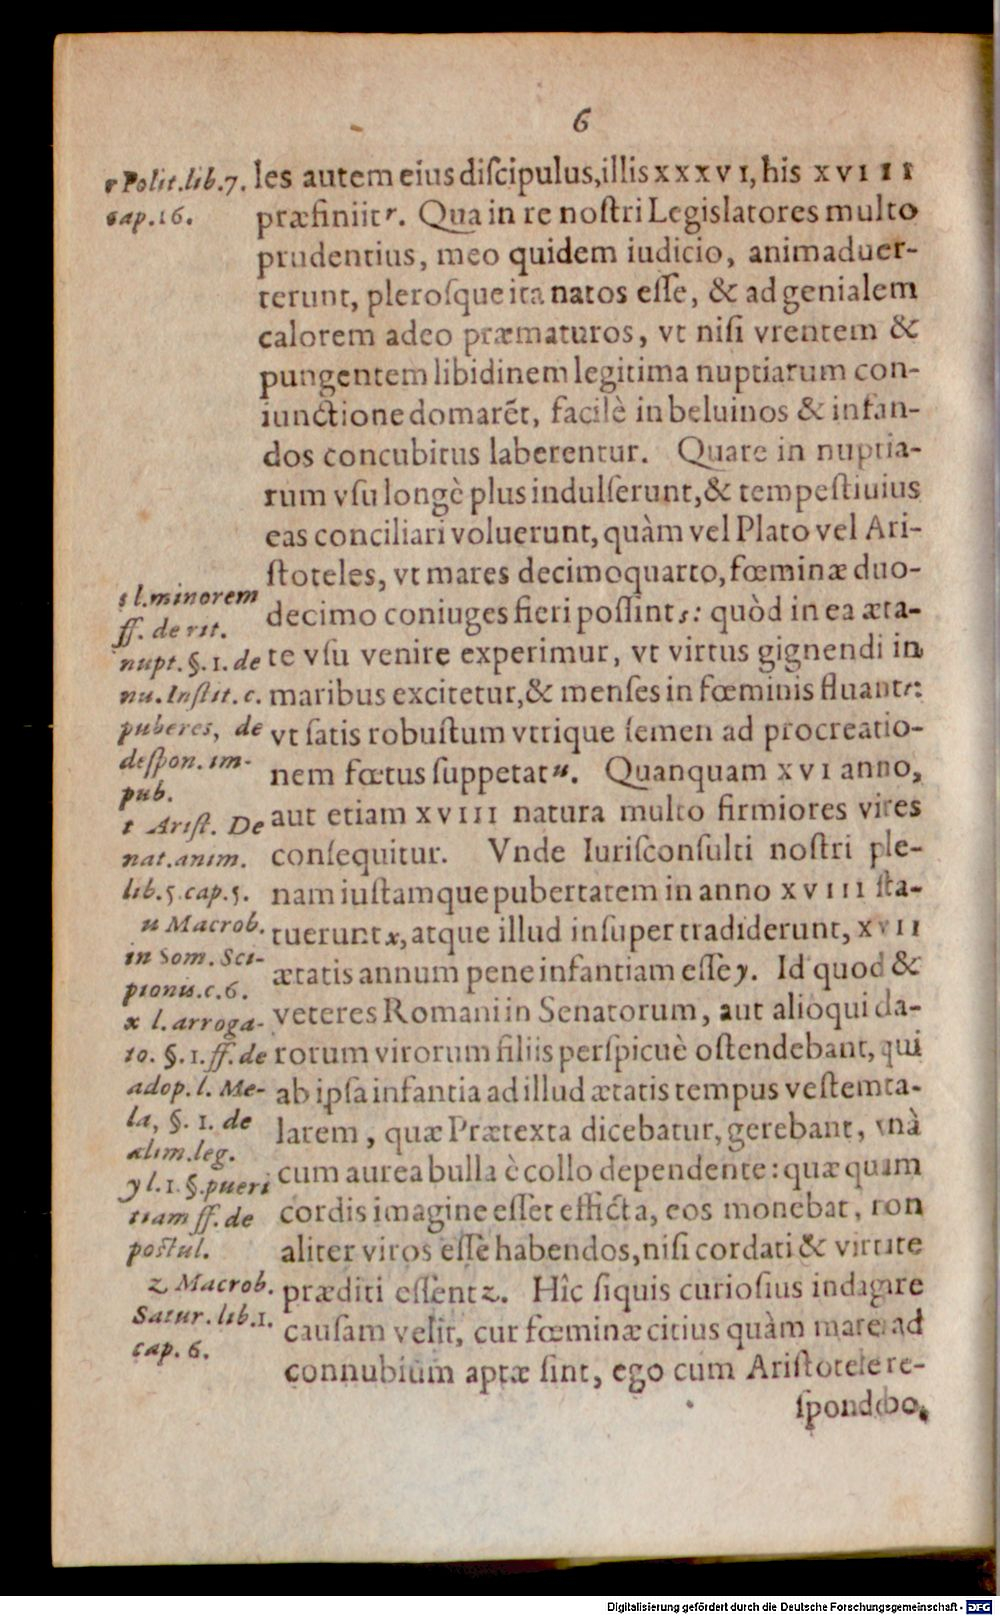 6
les autem eius diſcipulus, illis XXXVI, his XVIII
præfiniit r. Qua in re noſtri Legislatores multo
prudentius, meo quidem iudicio, animaduer-
terunt, pleroſque ita natos eſſe, & ad genialem
calorem adeo præmaturos, vt niſi vrentem &
pungentem libidinem legitima nuptiarum con-
iunctione domarēt, facilè in beluinos & infan-
dos concubitus laberentur. Quare in nuptia-
rum vſu longè plus indulſerunt, & tempeſtiuius
eas conciliari voluerunt, quàm vel Plato vel Ari-
ſtoteles, vt mares decimoquarto, fœminæ duo-
decimo coniuges fieri poſſint s: quòd in ea æta-
te vſu venire experimur, vt virtus gignendi in
maribus excitetur, & menſes in fœminis fluant t:
vt ſatis robuſtum vtrique ſemen ad procreatio-
nem fœtus ſuppetat u. Quanquam XVI anno,
aut etiam XVIII natura multo firmiores vires
conſequitur. Vnde Iuriſconſulti noſtri ple-
nam iuſtamque pubertatem in anno XVIII ſta-
tuerunt x, atque illud inſuper tradiderunt, XVII
ætatis annum pene infantiam eſſe y. Id quod &
veteres Romani in Senatorum, aut alioqui cla-
rorum virorum filiis perſpicuè oſtendebant, qui
ab ipſa infantia ad illud ætatis tempus veſtem ta-
larem, quæ Prætexta dicebatur, gerebant, vnà
cum aurea bulla è collo dependente: quæ quum
cordis imagine eſſet efficta, eos monebat, non
aliter viros eſſe habendos, niſi cordati & virtute
præditi eſſent z. Hîc ſiquis curioſius indagare
cauſam velit, cur fœminæ citius quàm mares ad
connubium aptæ ſint, ego cum Ariſtotele re-
ſpondebo,
r Polit. lib. 7.
cap. 16.
s l. minorem
ff. de rit.
nupt. §. 1. de
nu. Inſtit. c.
puberes, de
deſpon. im-
pub.
t Ariſt. De
nat. anim.
lib. 5. cap. 5.
u Macrob.
in Som. Sci-
pionis. c. 6.
x l. arroga-
to. §. 1. ff. de
adop. l. Me-
la, §. 1. de
alim. leg.
y l. 1. §. pueri
tiam ff. de
poſtul.
z Macrob.
Satur. lib. 1.
cap. 6.
Digitalisierung gefördert durch die Deutsche Forschungsgemeinschaft - DFG